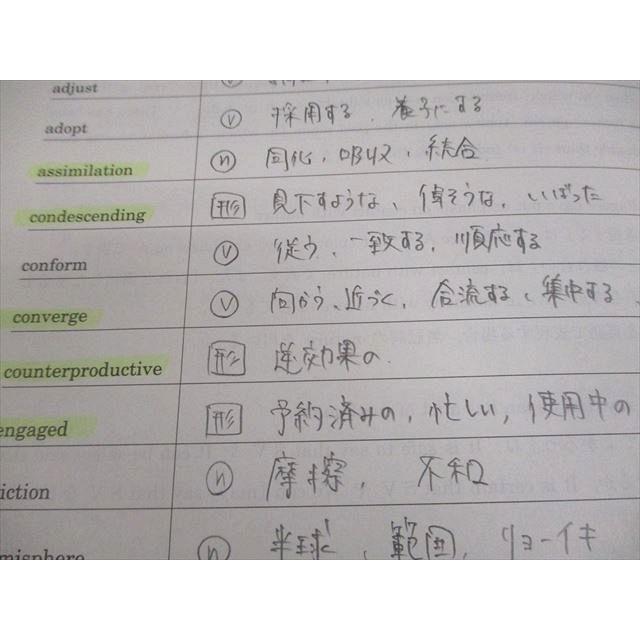 adjust ⓥ
adopt ⓥ 採用する、養子にする
assimilation ⓝ 同化、吸収、結合
condescending 形 見下すような、偉そうな、いばった
conform ⓥ 従う、一致する、順応する
converge ⓥ 向かう、近づく、合流する、集中する
counterproductive 形 逆効果の
engaged 形 予約済みの、忙しい、使用中の
iction ⓝ 摩擦 不和
misphere ⓝ 半球、範囲、リョーイキ